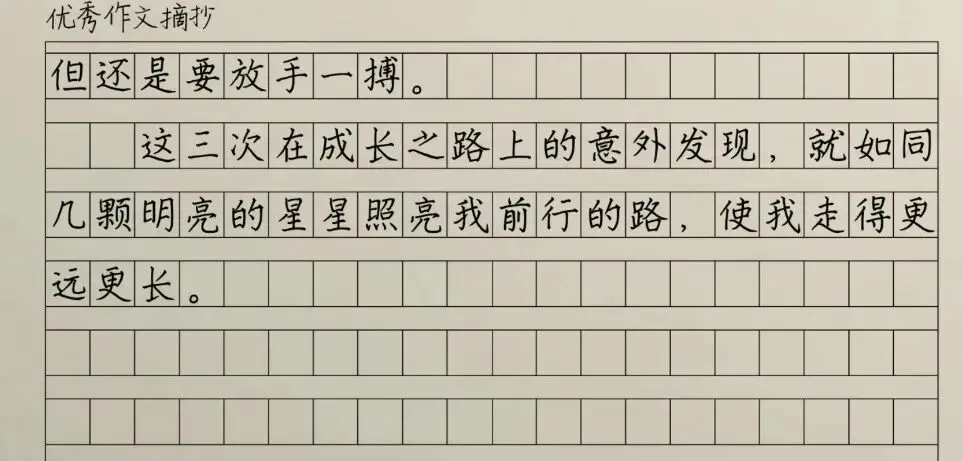 优秀作文摘抄
但还是要放手一搏。
这三次在成长之路上的意外发现，就如同
几颗明亮的星星照亮我前行的路，使我走得更
远更长。